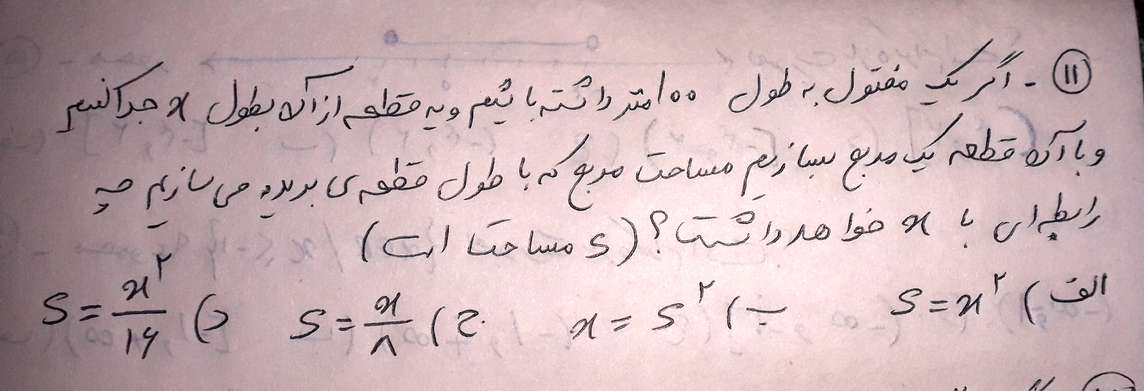 ۱۱ - اگر یک مفتول به طول ۱۰۰ متر داشته باشیم و یه قطعه از آن بطول x جدا کنیم
و با آن قطعه یک مربع بسازیم مساحت مربع که با طول قطعه‌ی بریده می سازیم چه
رابطه‌ای با x خواهد داشت؟ (S مساحت است)
الف) S = x² ب) x = S² ج) S = x/۸ د) S = x²/۱۶